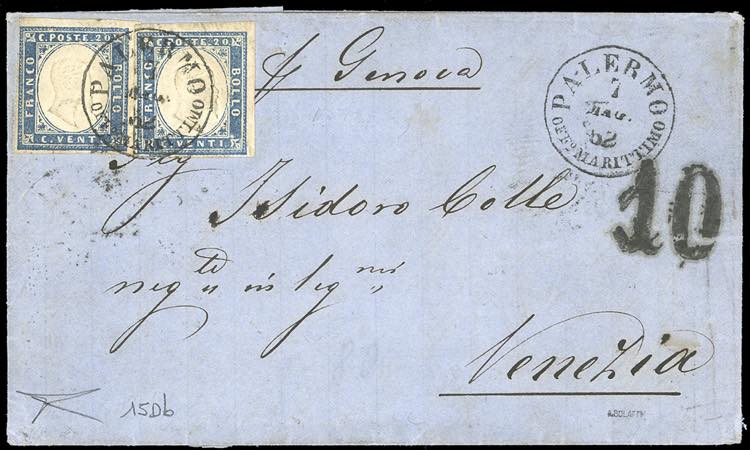 C. POSTE. 20
FRANCO
BOLLO
C. VENTI
C. POSTE. 20
FRANCO
BOLLO
C. VENTI
PALERMO
MARITTIMO
p Genova
PALERMO
7
MAG.
62
OFF° MARITTIMO
10
Sig
Isidoro Colle
neg.te in leg.mi
Venezia
15Db
A.BOLAFFI